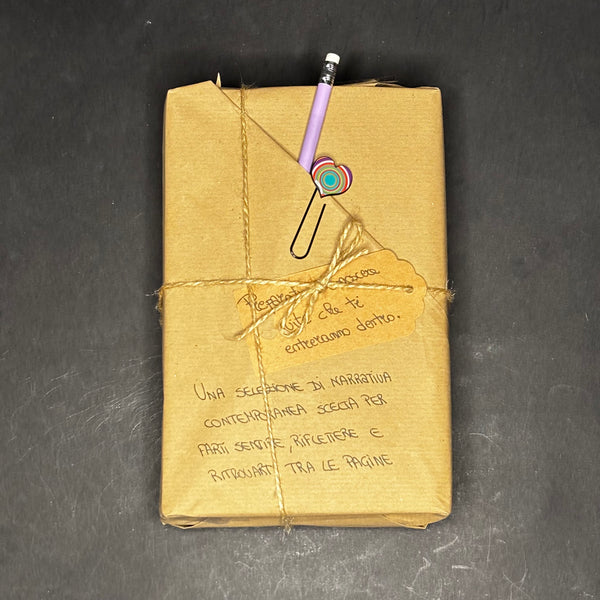 Preparati a conoscere
vite che ti
entreranno dentro.
UNA SELEZIONE DI NARRATIVA
CONTEMPORANEA SCELTA PER
FARTI SENTIRE, RIFLETTERE E
RITROVARTI TRA LE PAGINE